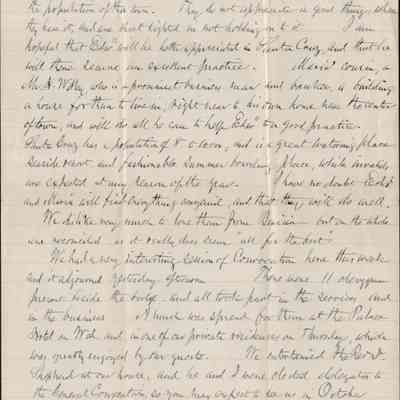 the population of the town. They do not appreciate a good thing, when
they have it, and are short sighted in not holding on to it. I am
hopeful that Edwd will be both appreciated in Santa Cruz, and that he
will there secure an excellent practice. Maria's cousin, a
Mr. H. Willey, who is a prominent business man and banker, is building
a house for them to live in, right near to his own home near the center
of town, and will do all he can to help Edwd to a good practice.
Santa Cruz has a population of 8 to 10000, and is a great watering place
seaside resort and fashionable summer boarding place, while invalids
are expected at any season of the year. I have no doubt Edwd
and Maria will find everything congenial, and that they will do well.
We dislike very much to lose them from Benicia - but on the whole
are reconciled as it really does seem "all for the best"
We had a very interesting session of Convocation here this week
and it adjourned yesterday afternoon. There were 11 clergymen
present beside the bishop and all took part in the services and
in the business. A lunch was spread for them at the Palace
Hotel on Wed. and in one of our private residences on Thursday, which
was greatly enjoyed by our guests. We entertained the Revd.
Shepherd at our house, and he and I were elected delegates to
the General Convention, so you may expect to see us in October